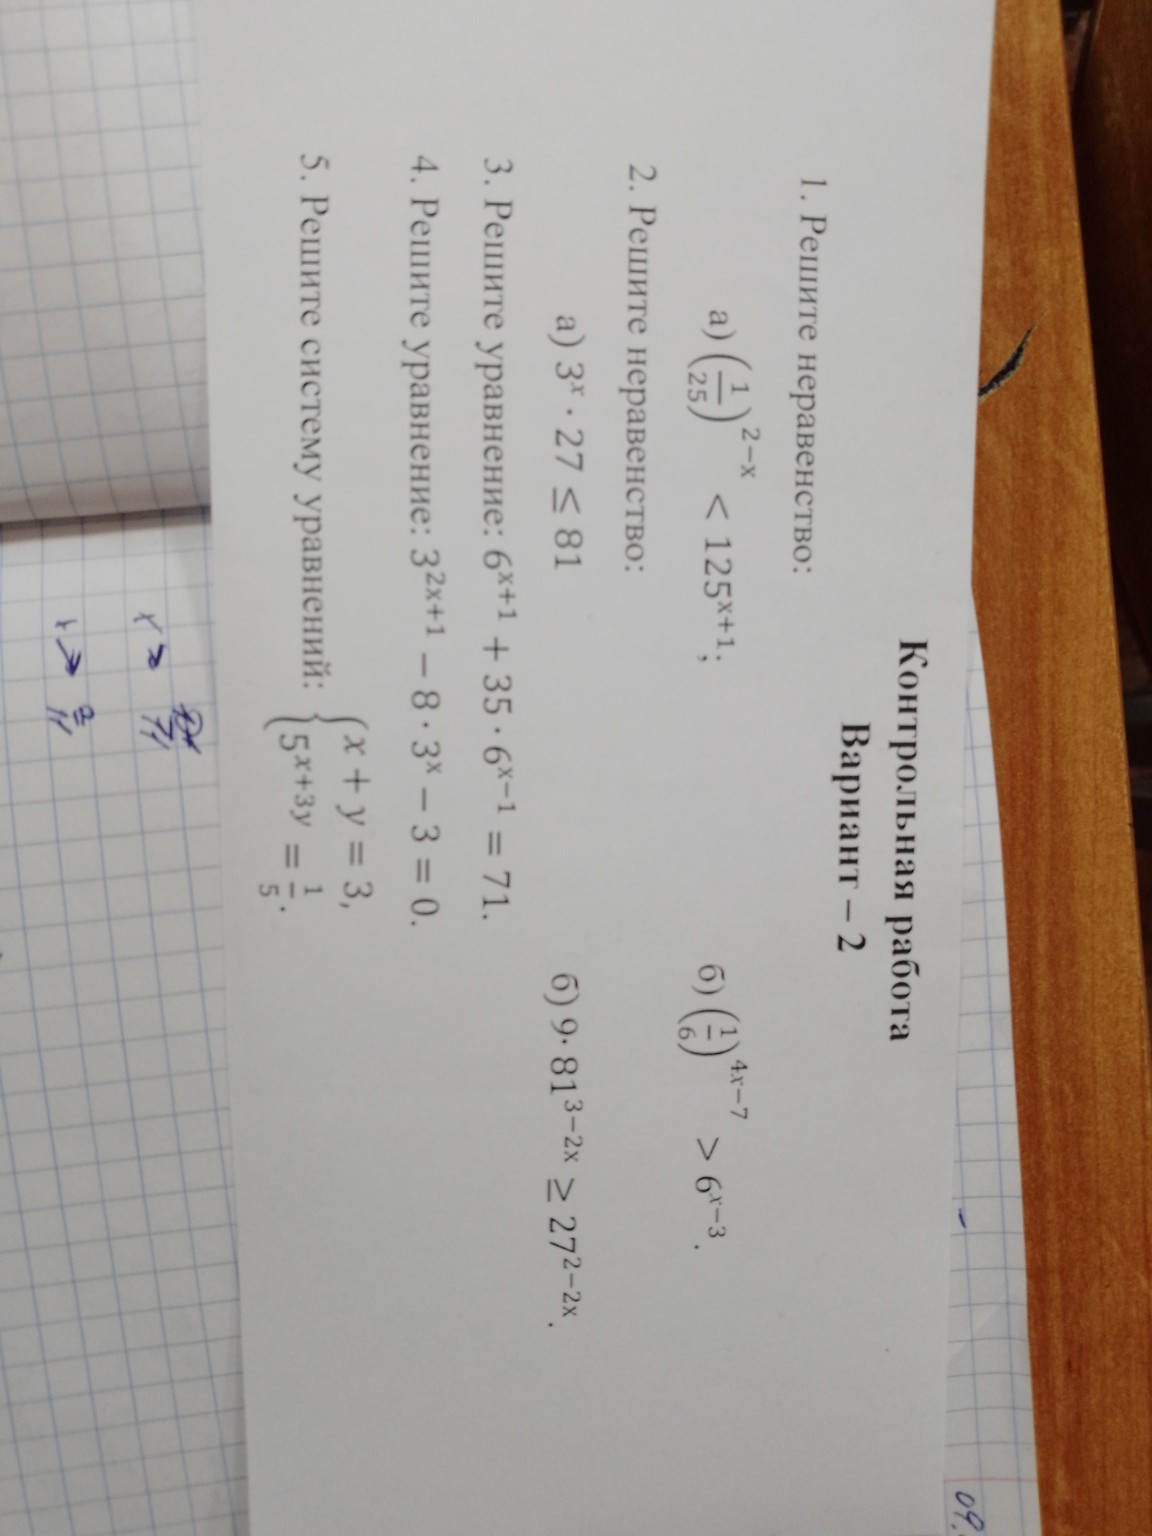 Контрольная работа
Вариант – 2
1. Решите неравенство:
а) (1/25)^(2−x) < 125^(x+1); б) (1/6)^(4x−7) > 6^(x−3).
2. Решите неравенство:
а) 3^x · 27 ≤ 81 б) 9 · 81^(3−2x) ≥ 27^(2−2x).
3. Решите уравнение: 6^(x+1) + 35 · 6^(x−1) = 71.
4. Решите уравнение: 3^(2x+1) − 8 · 3^x − 3 = 0.
5. Решите систему уравнений: { x + y = 3,
5^(x+3y) = 1/5.
09.